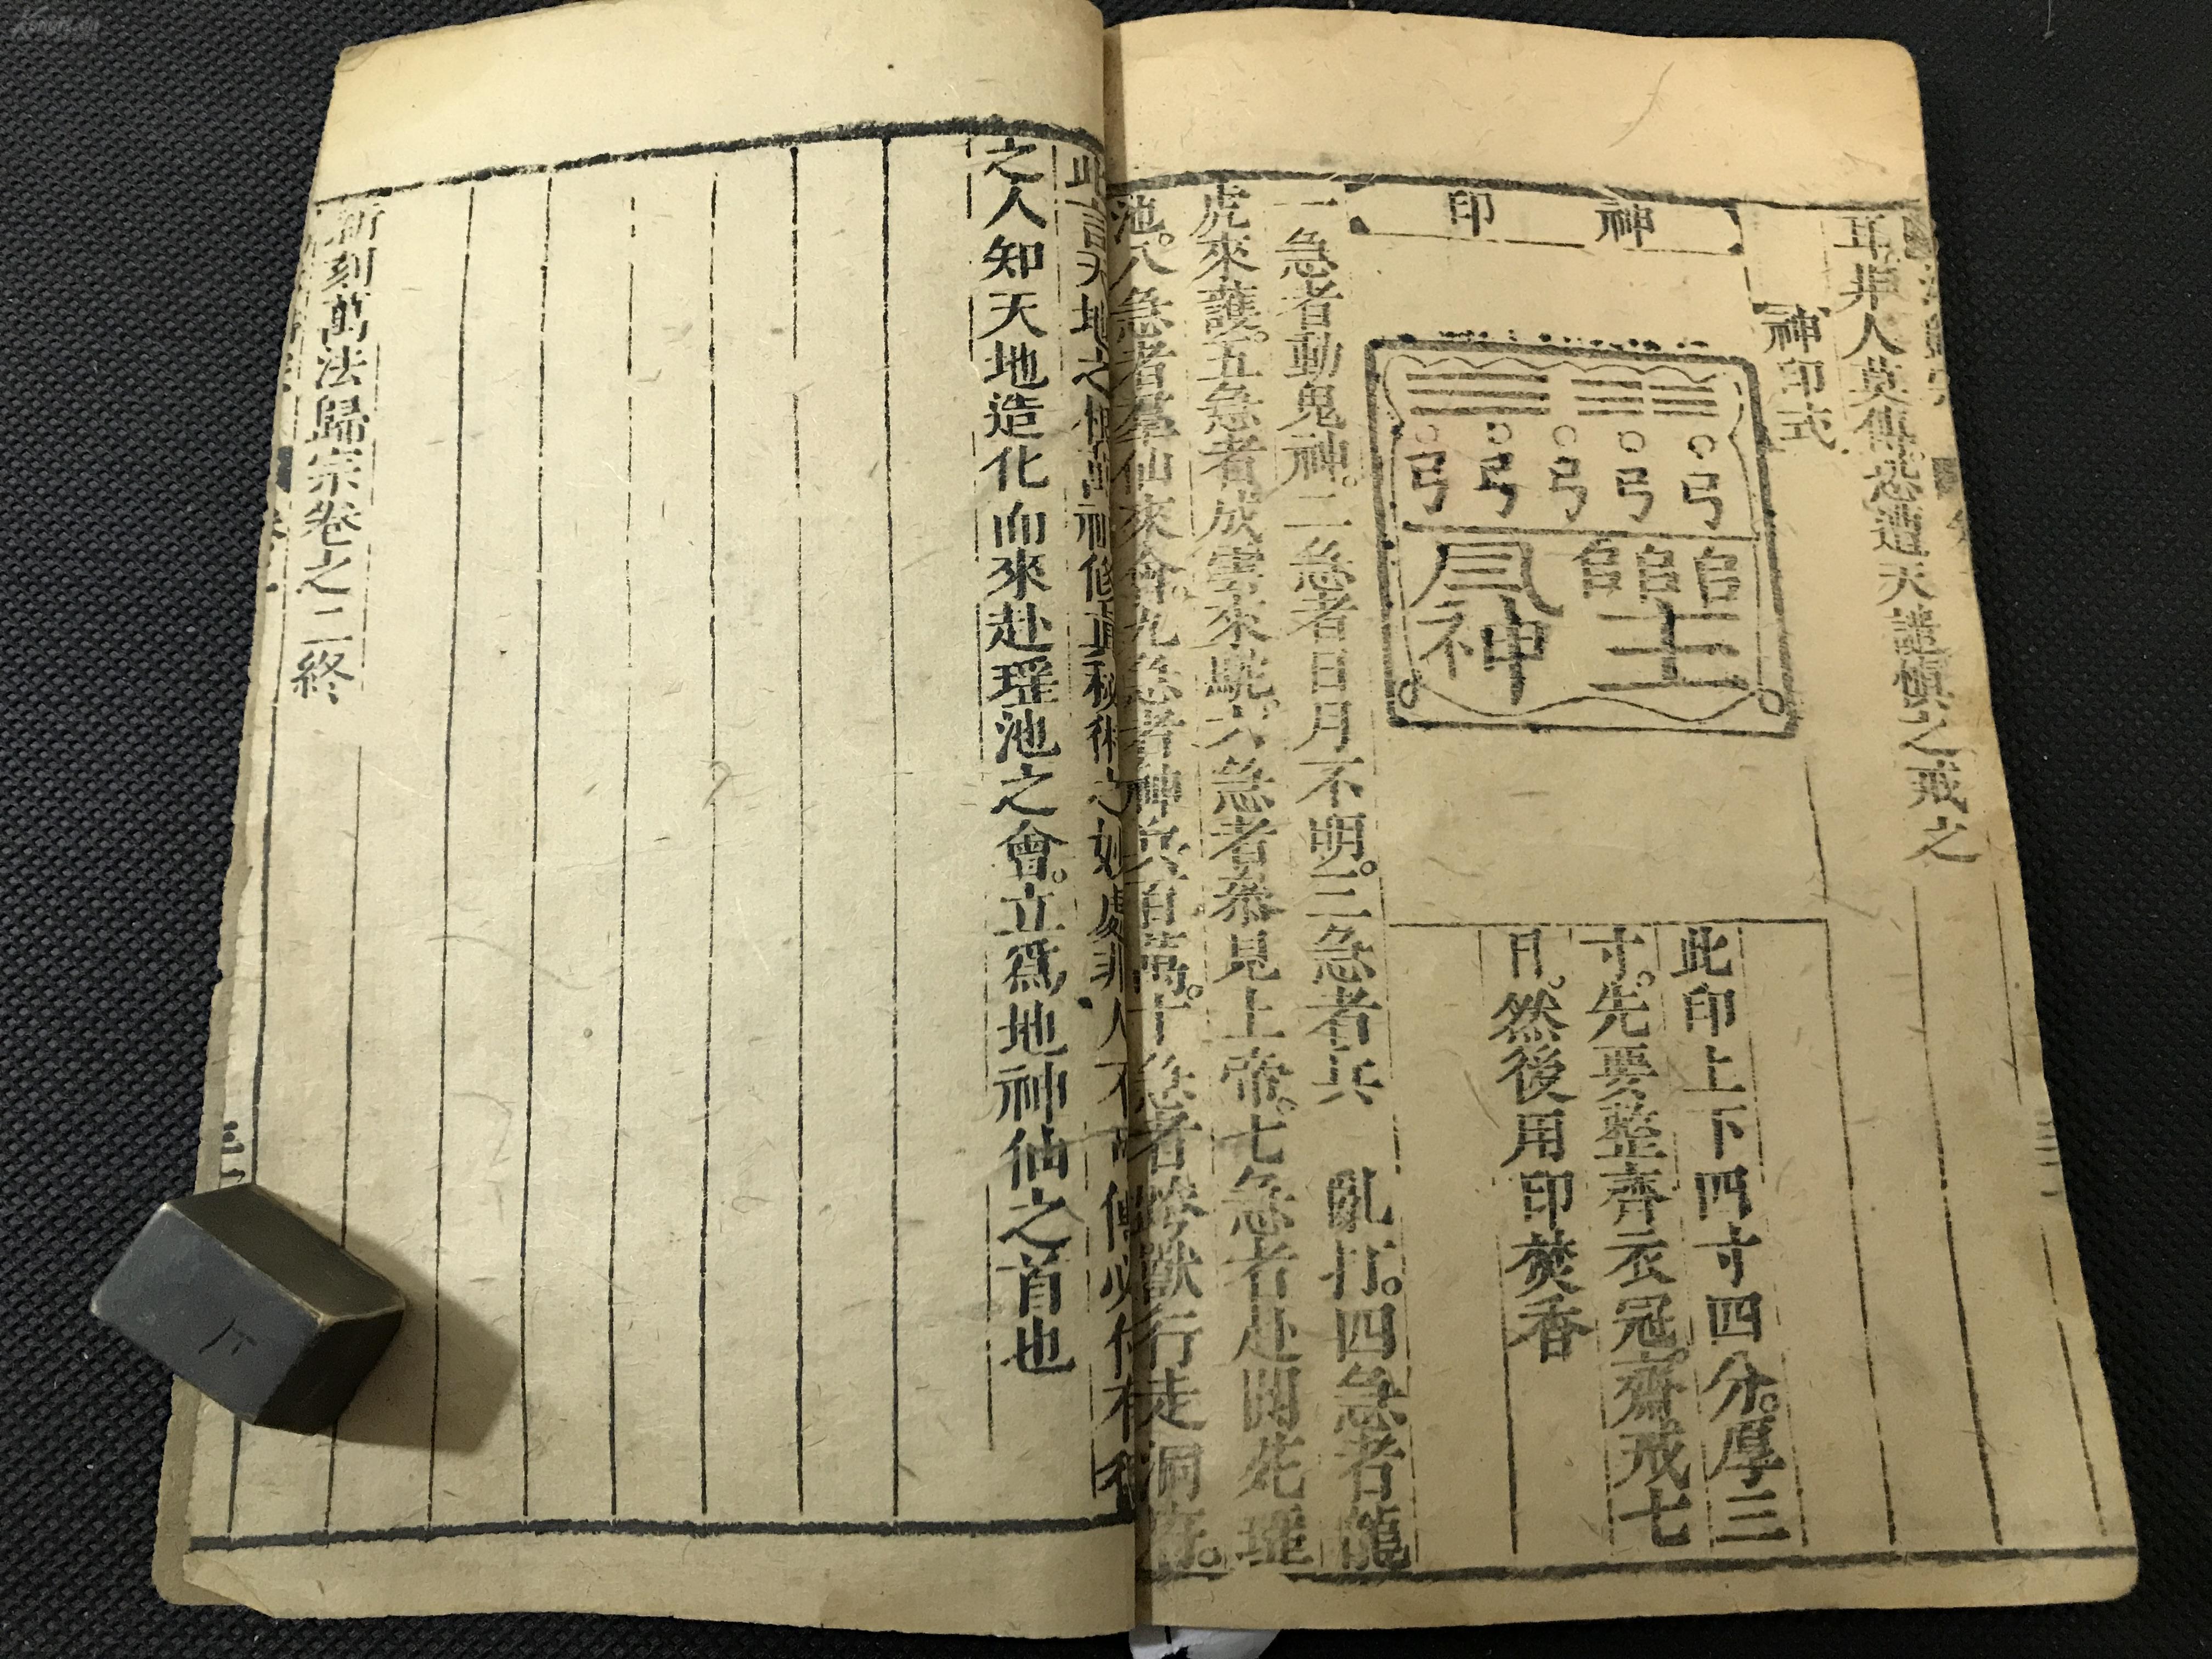 耳非人莫傳恐遭天譴慎之戒之
神印式
神印
此印上下四寸四分。厚三
寸。先要整齊衣冠。齋戒七
日。然後用印焚香
一急者動鬼神。二急者日月不明。三急者兵 亂打。四急者龍
虎來護。五急者成雲來駝。六急者恭見上帝。七急者赴開苑瑤
池。八急者羣仙來會。九急者神兵百萬。十急者跨獸行走洞府。
此言天地之 神仙修真秘術之妙處非人不可傳
之人知天地造化而來赴瑤池之會。立爲地神仙之首也
新刻萬法歸宗卷之二終